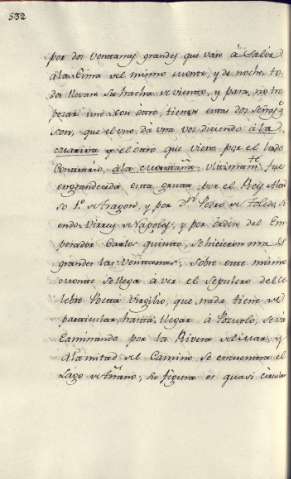 532
por dos Ventanas grandes que van à salir
à la Cima del mismo monte, y de noche to-
dos llevan su hacha de viento, y para no tro-
pezar unos con otros, tienen
que el uno da una voz diciendo à la
y el otro que viene por el lado
Contrario, à la montaña. Ultimam.te fue
engrandecida esta gruta por el Rey Alon-
so 1.º de Aragon, y por D.n Pedro de Toledo, si-
endo Virrey de Napoles, y por orden del Em-
perador Carlos quinto, se hicieron mas
grandes las Ventanas; sobre este mismo
monte se llega à ver el sepulcro del ce-
lebre Poeta Virgilio, que nada tiene de
particular; hasta llegar à Pozuolo, se va
Caminando por la Rivera del Mar, y
à la mitad del Camino se encuentra el
Lago de Añano; su figura es quasi circular